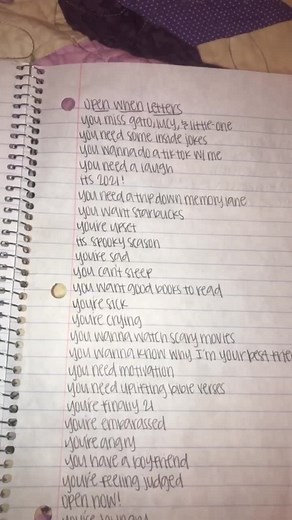 open when letters
you miss gato, lucy, & little-one
you need some inside jokes
you wanna do a tiktok w/ me
you need a laugh
its 2021!
you need a trip down memory lane
you want starbucks
you're upset
its spooky season
you're sad
you can't sleep
you want good books to read
you're sick
you're crying
you wanna watch scary movies
you wanna know why I'm your best frie
you need motivation
you need uplifting bible verses
you're finally 21
you're embarassed
you're angry
you have a boyfriend
you're feeling judged
open now!
you're hungry